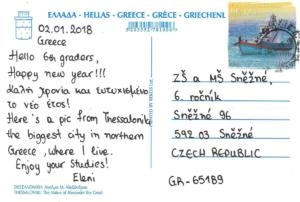 ΕΛΛΑΔΑ - HELLAS - GREECE - GRÈCE - GRIECHENL
02.01.2018
Greece
Hello 6th graders,
Happy new year!!!
Καλή χρονιά και ευτυχισμένο
το νέο έτος!
Here's a pic from Thessaloniki
the biggest city in northern
Greece, where I live.
Enjoy your Studies!
Eleni
ΘΕΣΣΑΛΟΝΙΚΗ:
THESSALONIKI: The Statue of Alexander the Great
ZŠ a MŠ Sněžné,
6. ročník
Sněžné 96
592 03 Sněžné
CZECH REPUBLIC
GR-65189